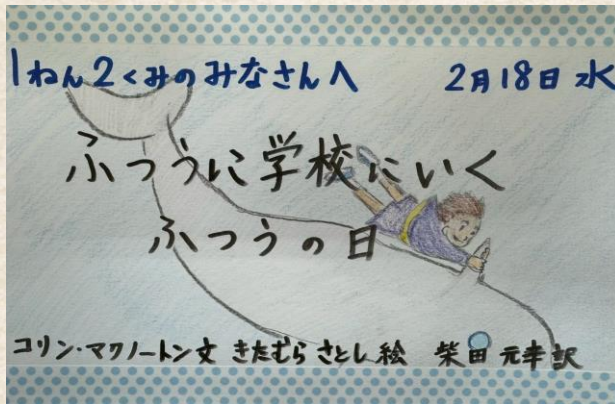 1ねん2くみのみなさんへ 2月18日 水
ふつうに学校にいく
ふつうの日
コリン・マクノートン文 きたむらさとし絵 柴田元幸訳